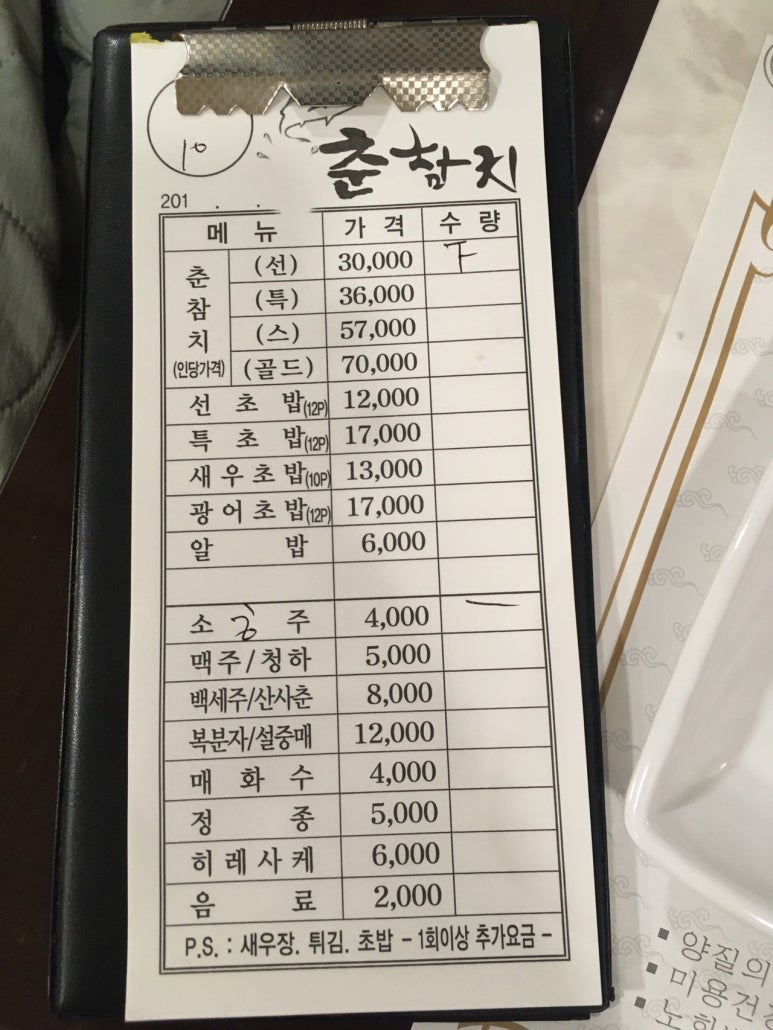 10
춘참치
201 . .
메 뉴 가 격 수 량
춘참치 (인당가격) (선) 30,000 ㅜ
(특) 36,000
(스) 57,000
(골드) 70,000
선 초 밥(12P) 12,000
특 초 밥(12P) 17,000
새우초밥(10P) 13,000
광어초밥(12P) 17,000
알 밥 6,000
소 주 4,000 一
맥주/청하 5,000
백세주/산사춘 8,000
복분자/설중매 12,000
매 화 수 4,000
정 종 5,000
히레사케 6,000
음 료 2,000
P.S. : 새우장. 튀김. 초밥 - 1회이상 추가요금 -
▪ 양질의
▪ 미용건